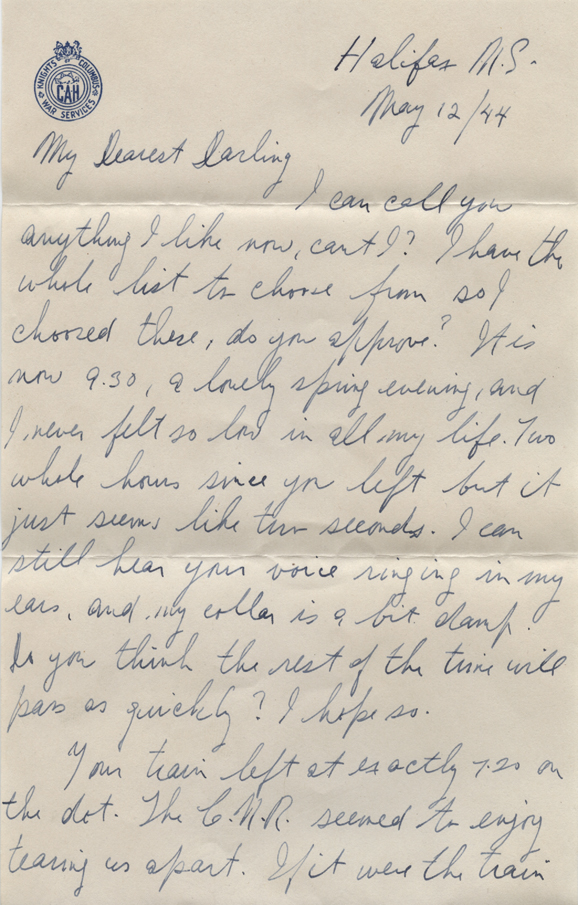 KNIGHTS OF COLUMBUS
CAH
WAR SERVICES
Halifax N.S.
May 12/44
My Dearest Darling
I can call you
anything I like now, cant I? I have the
whole list to choose from so I
choosed these, do you approve? It is
now 9.30, a lovely spring evening, and
I never felt so low in all my life. Two
whole hours since you left but it
just seems like two seconds. I can
still hear your voice ringing in my
ears, and my collar is a bit damp.
Do you think the rest of the time will
pass as quickly? I hope so.
Your train left at exactly 7.20 on
the dot. The C.N.R. seemed to enjoy
tearing us apart. If it were the train